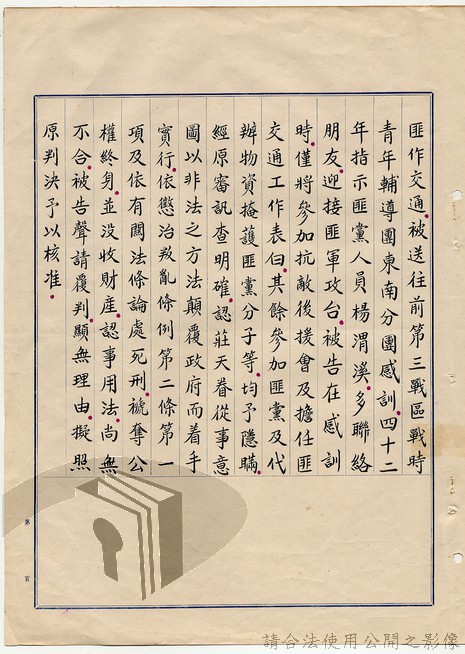 匪作交通.被送往前第三戰區戰時
青年輔導團東南分團感訓.四十二
年指示匪黨人員楊渭溪.多聯絡
朋友.迎接匪軍政台.被告在感訓
時.僅將參加抗敵後援會及擔任匪
交通工作表白.其餘參加匪黨及代
辦物資掩護匪黨分子等.均予隱瞞.
經原審訊查明確.認莊天眷從事意
圖以非法之方法顛覆政府而着手
實行.依懲治叛亂條例第二條第一
項及依有關法條論處死刑.褫奪公
權終身.並沒收財產.認事用法.尚無
不合.被告聲請覆判.顯無理由.擬照
原判決予以核准.
第 頁
請合法使用公開之影像